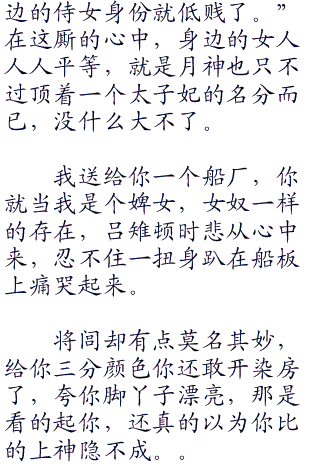 边的侍女身份就低贱了。”
在这厮的心中，身边的女人
人人平等，就是月神也只不
过顶着一个太子妃的名分而
已，没什么大不了。
我送给你一个船厂，你
就当我是个婢女，女奴一样
的存在，吕雉顿时悲从心中
来，忍不住一扭身趴在船板
上痛哭起来。
将闾却有点莫名其妙，
给你三分颜色你还敢开染房
了，夸你脚丫子漂亮，那是
看的起你，还真的以为你比
的上神隐不成。。